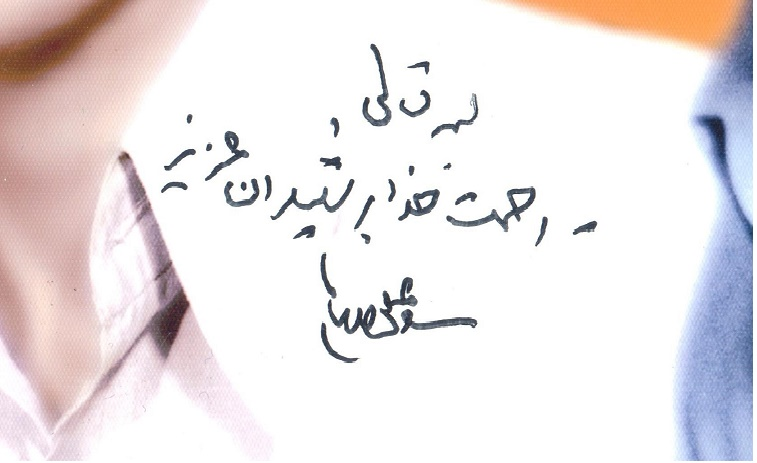 بسمه تعالی
- رحمت خدا بر شهیدان عزیز